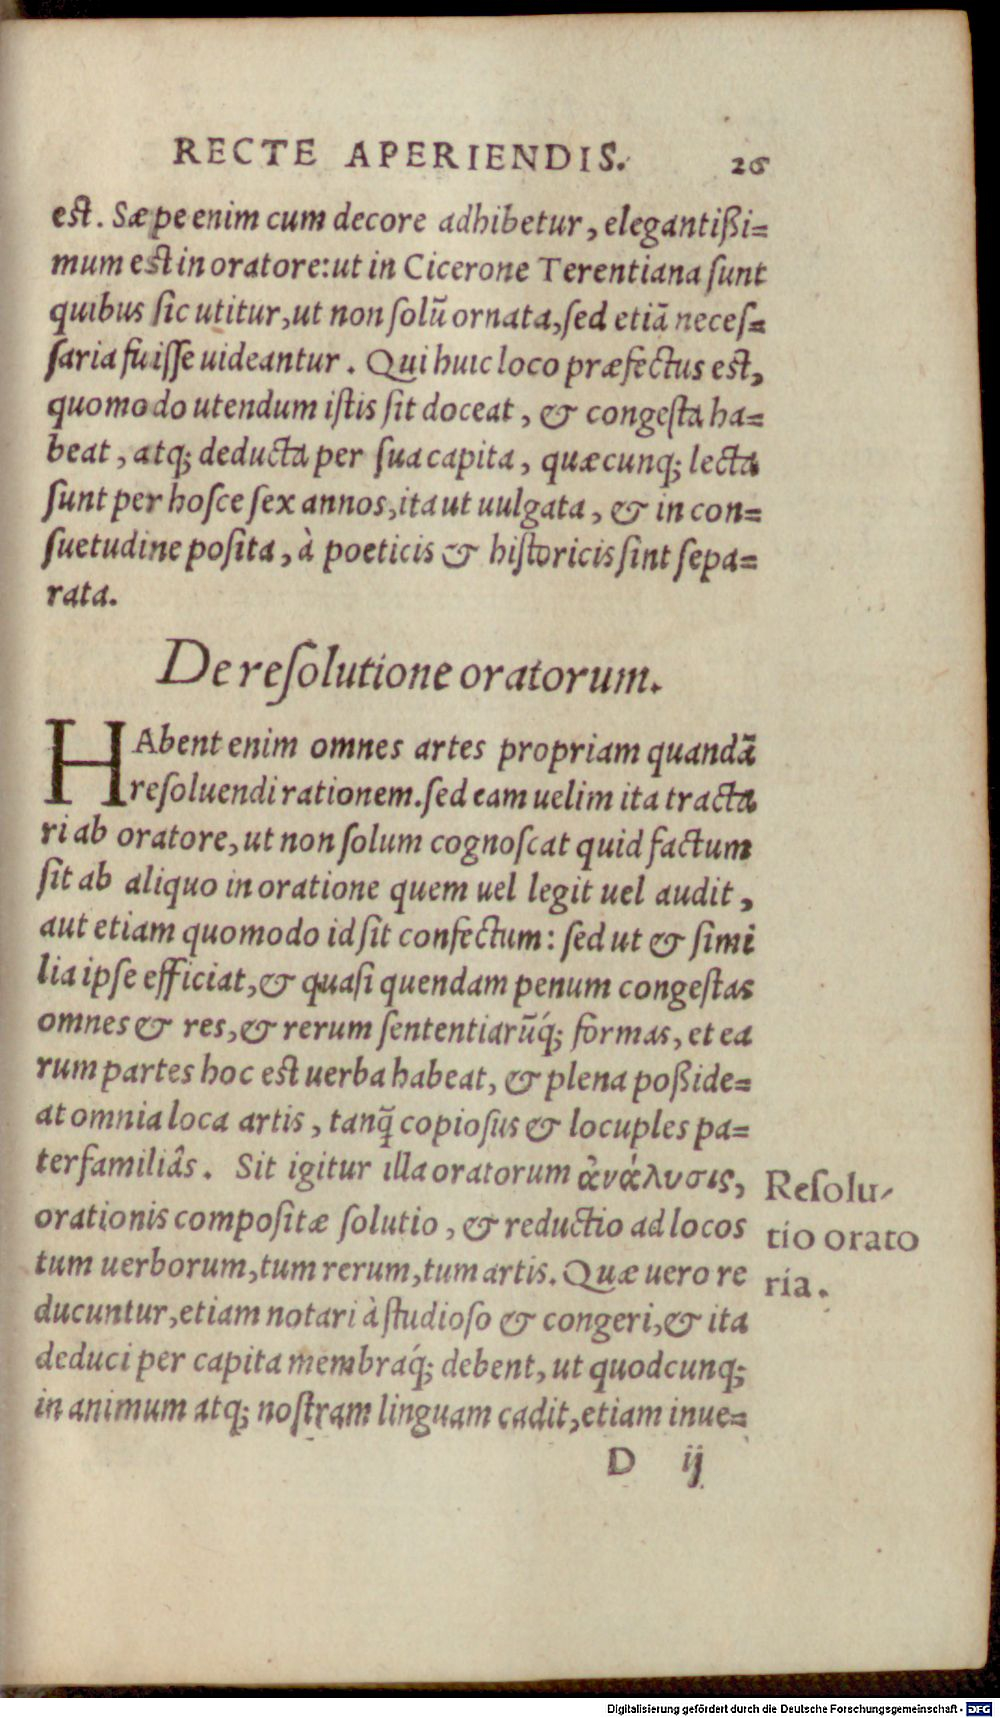 RECTE APERIENDIS. 26
est. Sæpe enim cum decore adhibetur, elegantißi=
mum est in oratore: ut in Cicerone Terentiana ſunt
quibus ſic utitur, ut non ſolũ ornata, ſed etiã neceſ=
ſaria fuiſſe uideantur. Qui huic loco præfectus est,
quomodo utendum iſtis ſit doceat, & congeſta ha=
beat, atq; deducta per ſua capita, quæcunq; lecta
ſunt per hoſce ſex annos, ita ut uulgata, & in con=
ſuetudine poſita, à poeticis & hiſtoricis ſint ſepa=
rata.
De reſolutione oratorum.
HAbent enim omnes artes propriam quandã
reſoluendi rationem. ſed eam uelim ita tracta
ri ab oratore, ut non ſolum cognoſcat quid factum
ſit ab aliquo in oratione quem uel legit uel audit,
aut etiam quomodo id ſit confectum: ſed ut & ſimi
lia ipſe efficiat, & quaſi quendam penum congeſtas
omnes & res, & rerum ſententiarũq́; formas, et ea
rum partes hoc est uerba habeat, & plena poßide=
at omnia loca artis, tanq̃ copioſus & locuples pa=
terfamiliâs. Sit igitur illa oratorum ἀνάλυσις,
Reſolu-
orationis compoſitæ ſolutio, & reductio ad locos
tio orato
tum uerborum, tum rerum, tum artis. Quæ uero re
ria.
ducuntur, etiam notari à ſtudioſo & congeri, & ita
deduci per capita membraq́; debent, ut quodcunq;
in animum atq; noſtram linguam cadit, etiam inue=
D ij
Digitalisierung gefördert durch die Deutsche Forschungsgemeinschaft - DFG